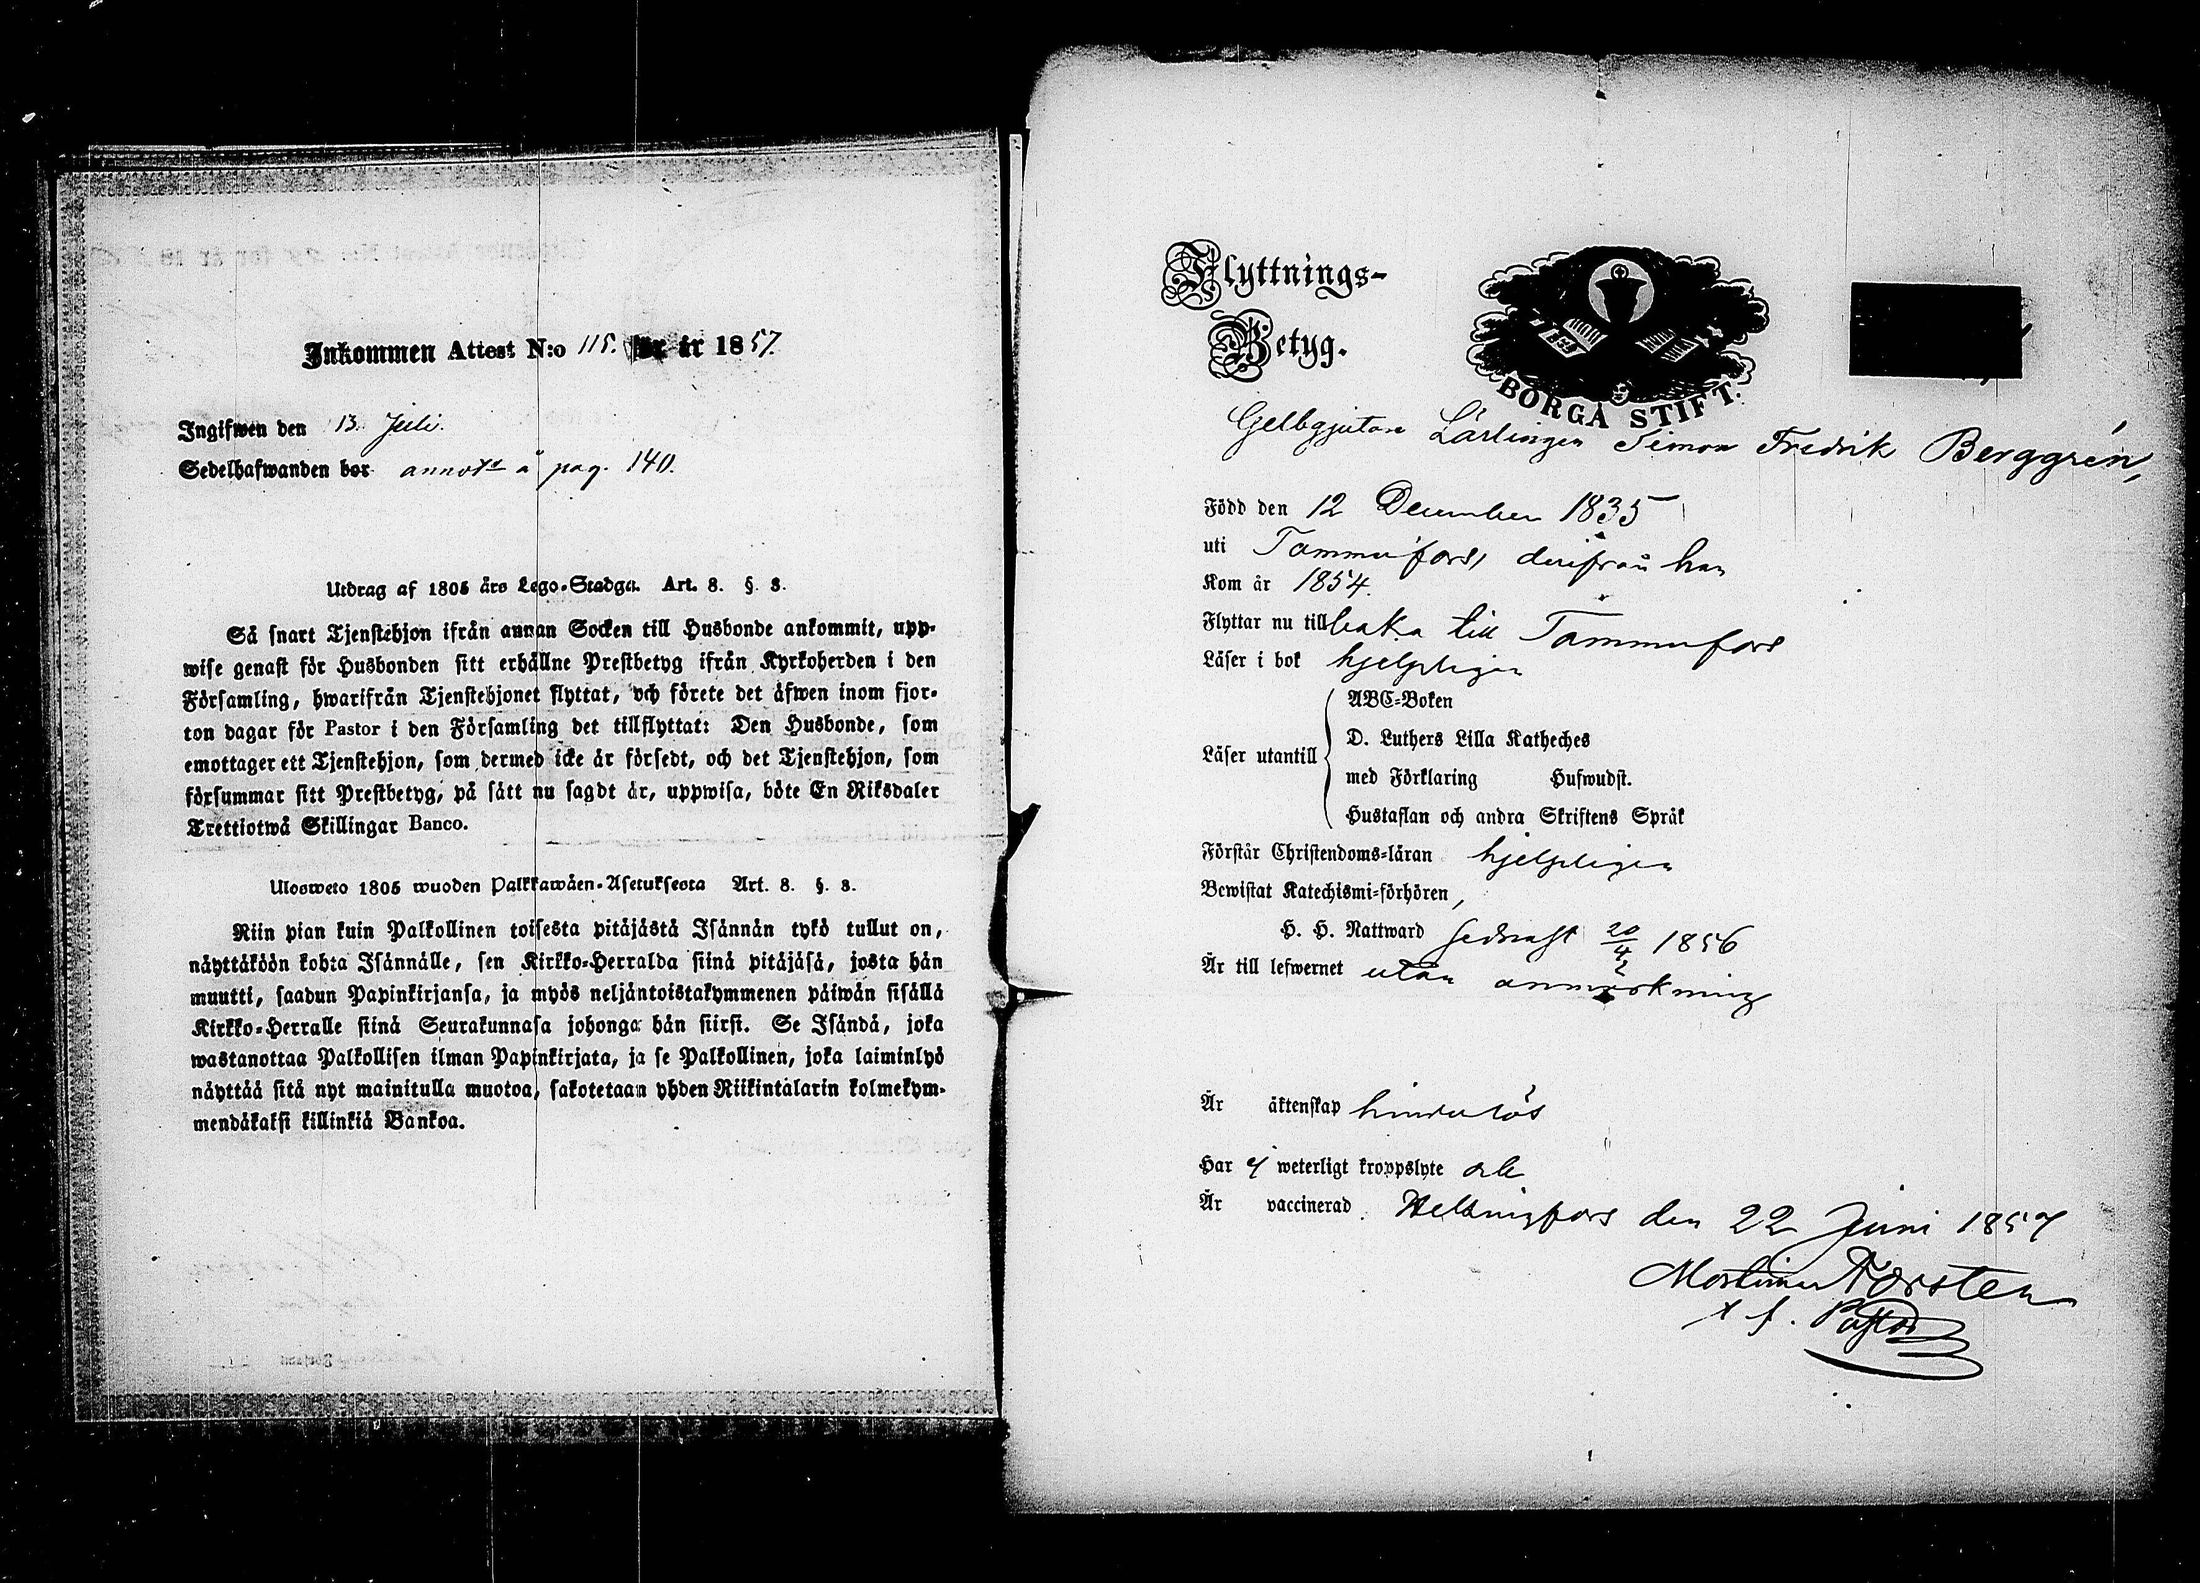 Inkommen Attest N:o 115. för år 1857.
Ingifwen den 13. Juli.
Sedelhafwanden bor annot. å pag. 140.
Utdrag af 1805 års Lego-Stadga. Art. 8. §. 8.
Så snart Tjenstehjon ifrån annan Socken till Husbonde ankommit, upp-
wise genast för Husbonden sitt erhållne Prestbetyg ifrån Kyrkoherden i den
Församling, hwarifrån Tjenstehjonet flyttat, och förete det äfwen inom fjor-
ton dagar för Pastor i den Församling det tillflyttat: Den Husbonde, som
emottager ett Tjenstehjon, som dermed icke är försedt, och det Tjenstehjon, som
försummar sitt Prestbetyg, på sätt nu sagdt är, uppwisa, böte En Riksdaler
Trettiotwå Skillingar Banco.
Ulosweto 1805 wuoden Palkkawäen-Asetuksesta Art. 8. §. 8.
Niin pian kuin Palkollinen toisesta pitäjästä Isännän tykö tullut on,
näyttäköön kohta Isännälle, sen Kirkko-Herralda siinä pitäjäsä, josta hän
muutti, saadun Papinkirjansa, ja myös neljäntoistakymmenen päiwän sisällä
Kirkko-Herralle siinä Seurakunnasa johonga hän siirsi. Se Isändä, joka
wastanottaa Palkollisen ilman Papinkirjata, ja se Palkollinen, joka laiminlyö
näyttää sitä nyt mainitulla muotoa, sakotetaan yhden Riikintalarin kolmekym-
mendäkaksi killinkiä Bankoa.
Flyttnings-
Betyg.
BORGÅ STIFT.
Gelbgjutare Lärlingen Simon Fredrik Berggrén,
Född den 12 December 1835
uti Tammerfors, derifrån han
Kom år 1854.
Flyttar nu tillbaka till Tammerfors
Läser i bok hjelpligen
ABC-Boken
D. Luthers Lilla Katheches
Läser utantill
med Förklaring Hufwudst.
Hustaflan och andra Skriftens Språk
Förstår Christendoms-läran hjelpligen
Bewistat Katechismi-förhören,
H. H. Nattward sednast 20/4 1856
Är till lefwernet utan anmärkning
Är äktenskap hinderlös
Har ej weterligt kroppslyte
Är vaccinerad. Helsingfors den 22 Juni 1857
Mortimer Forsten
t. f. Pastor